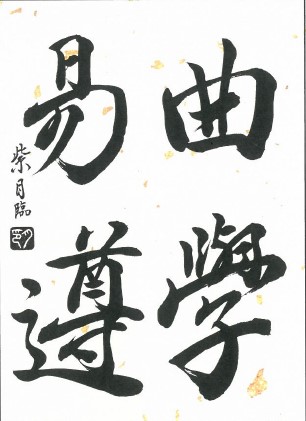 曲學
易遵
紫月臨